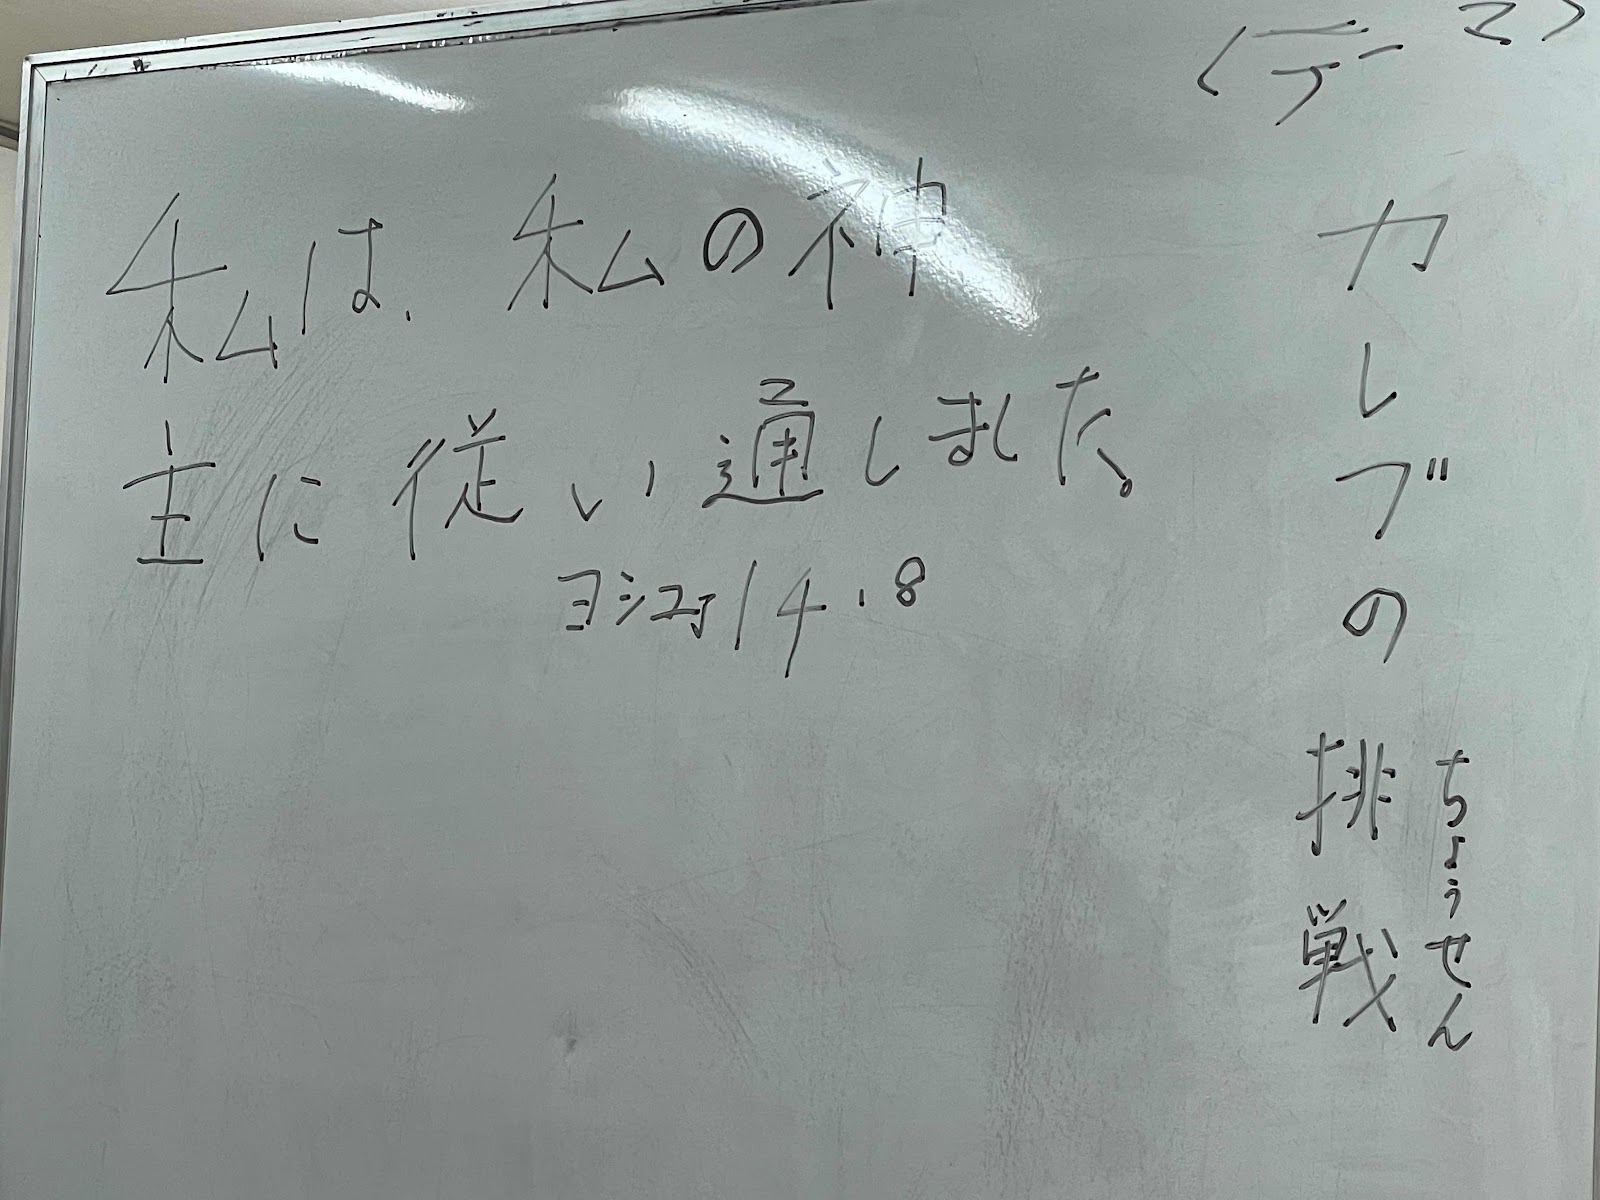 <テーマ>
カレブの挑戦
ちょうせん
私は、私の神
主に従い通しました。
ヨシュア14.8